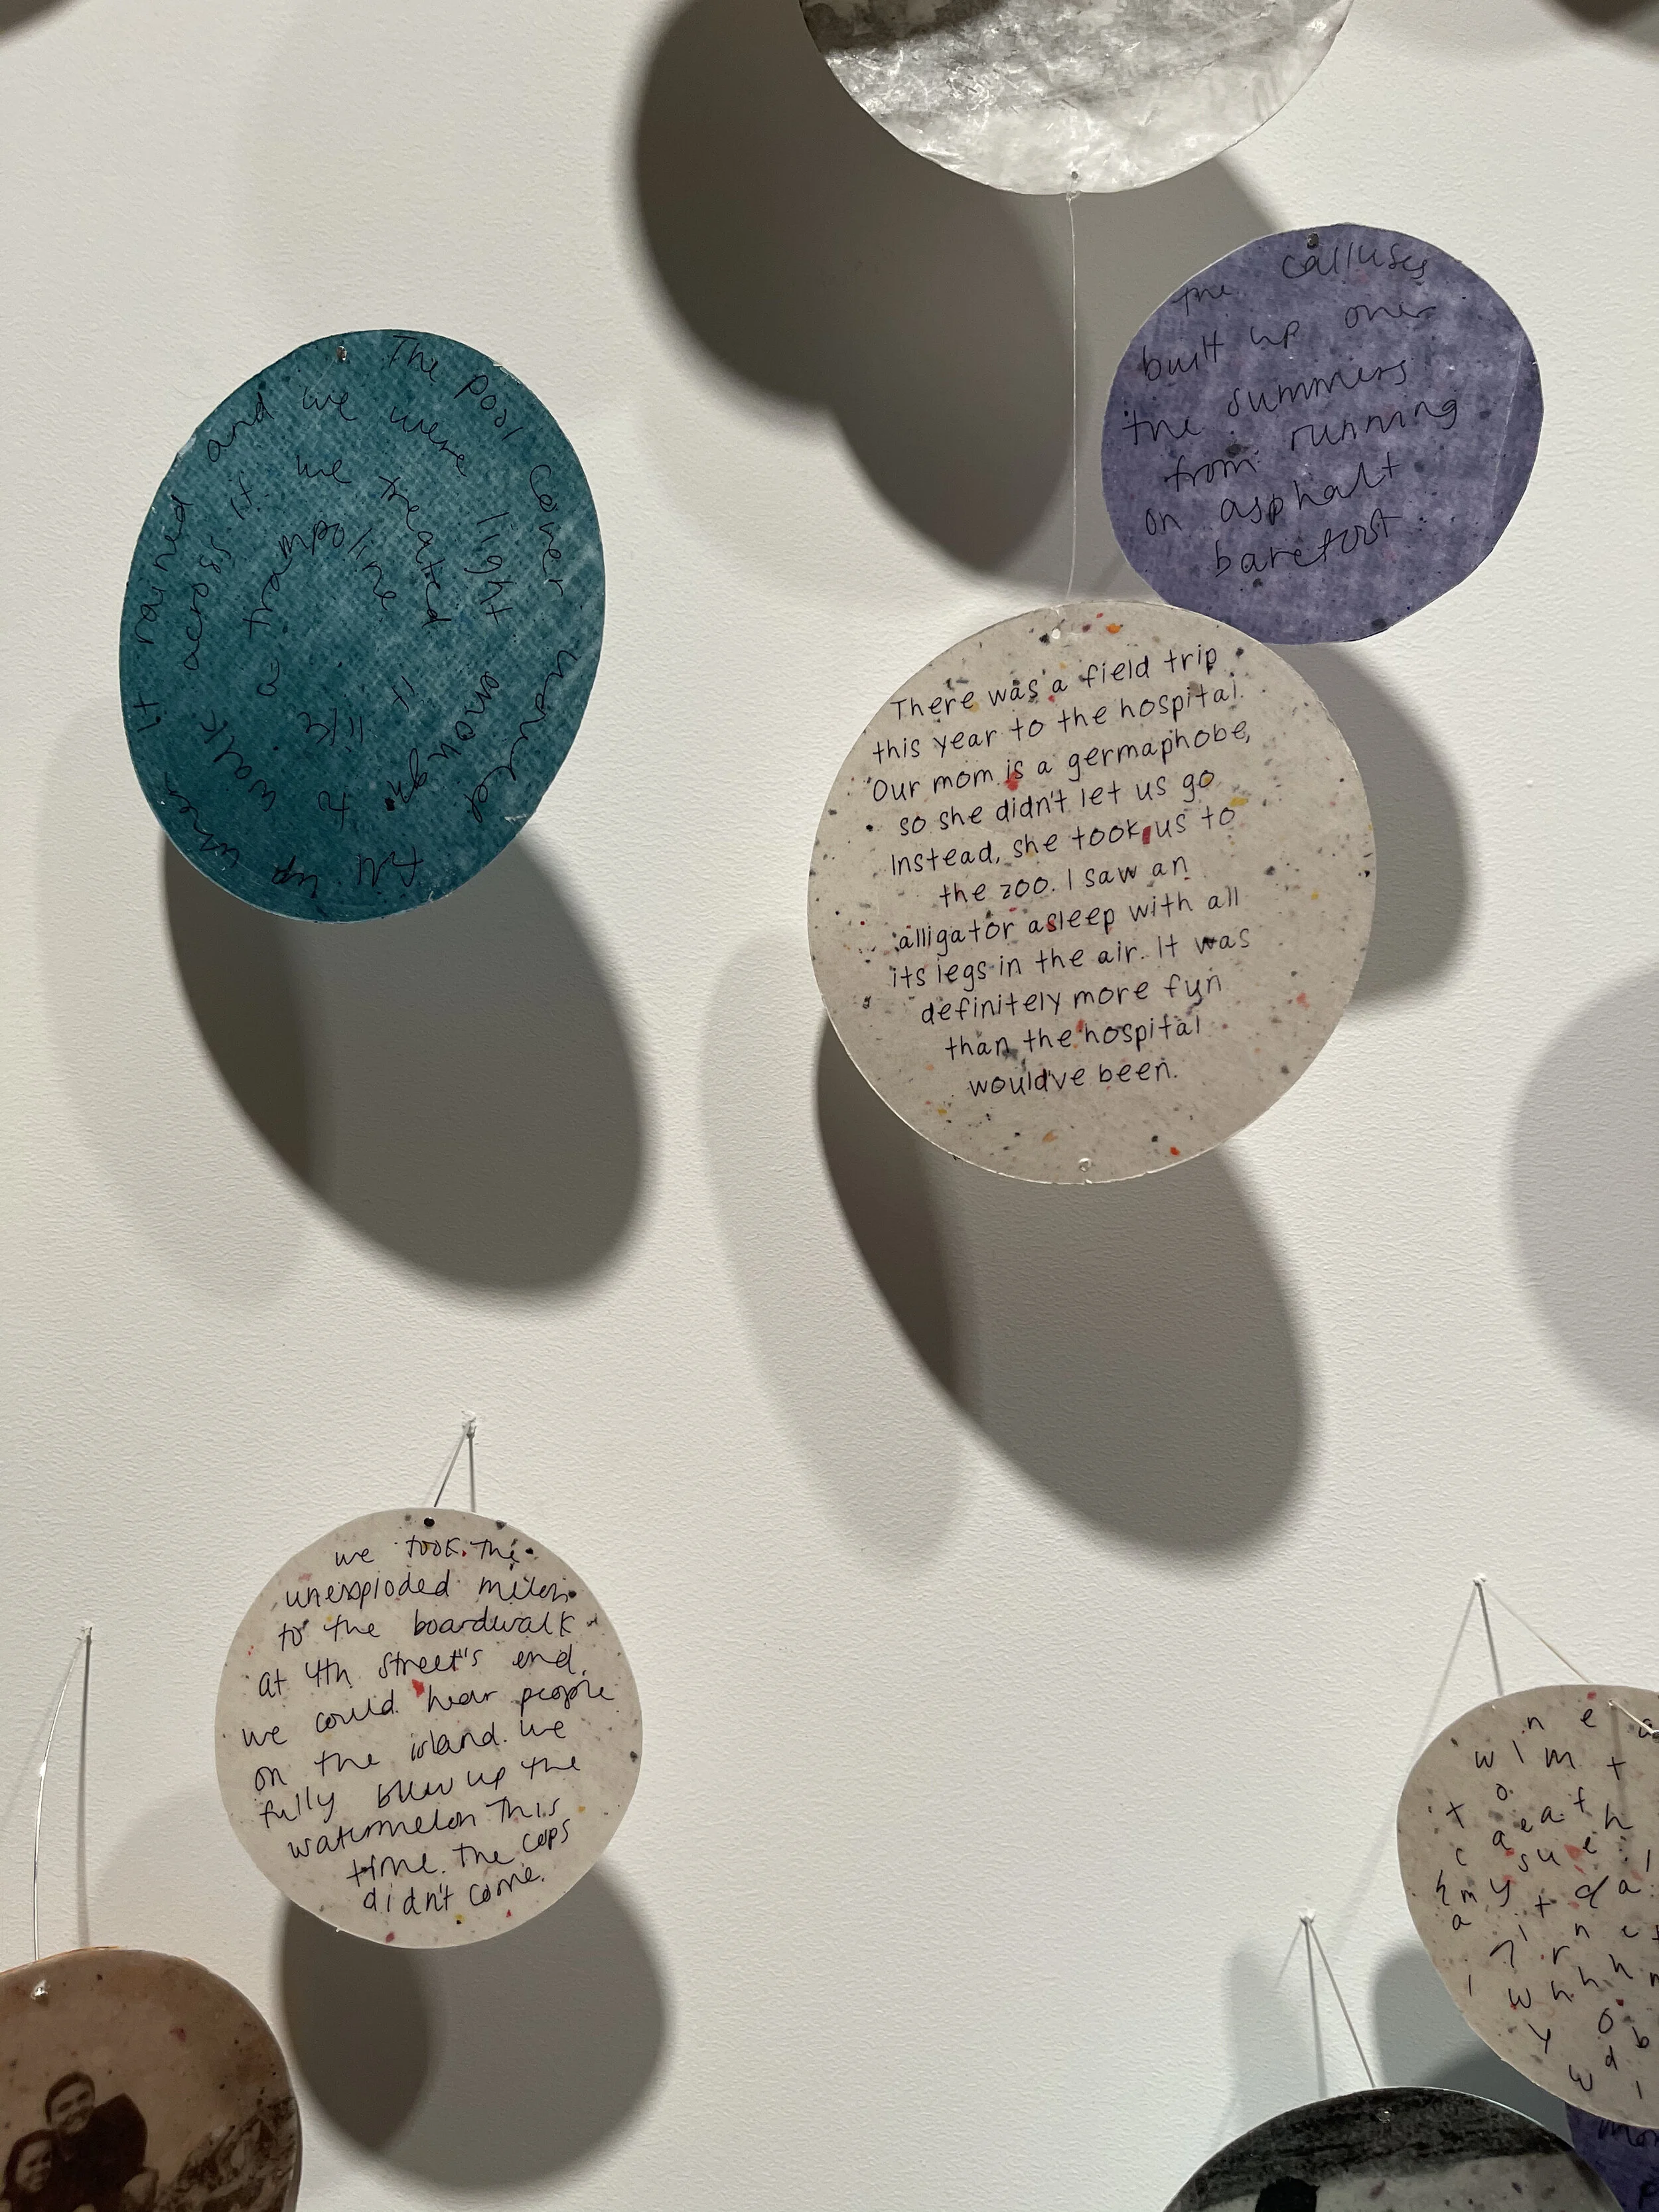 The pool cover would fill up when it rained and we were light enough to walk across it. we treated it like a trampoline
the calluses
built up over
the summers
from running
on asphalt
barefoot
There was a field trip
this year to the hospital.
Our mom is a germaphobe,
so she didn't let us go
Instead, she took us to
the zoo. I saw an
alligator asleep with all
its legs in the air. It was
definitely more fun
than the hospital
would've been.
we took the
unexploded melon
to the boardwalk
at 4th street's end.
we could hear people
on the island. we
fully blew up the
watermelon this
time. the cops
didn't come.